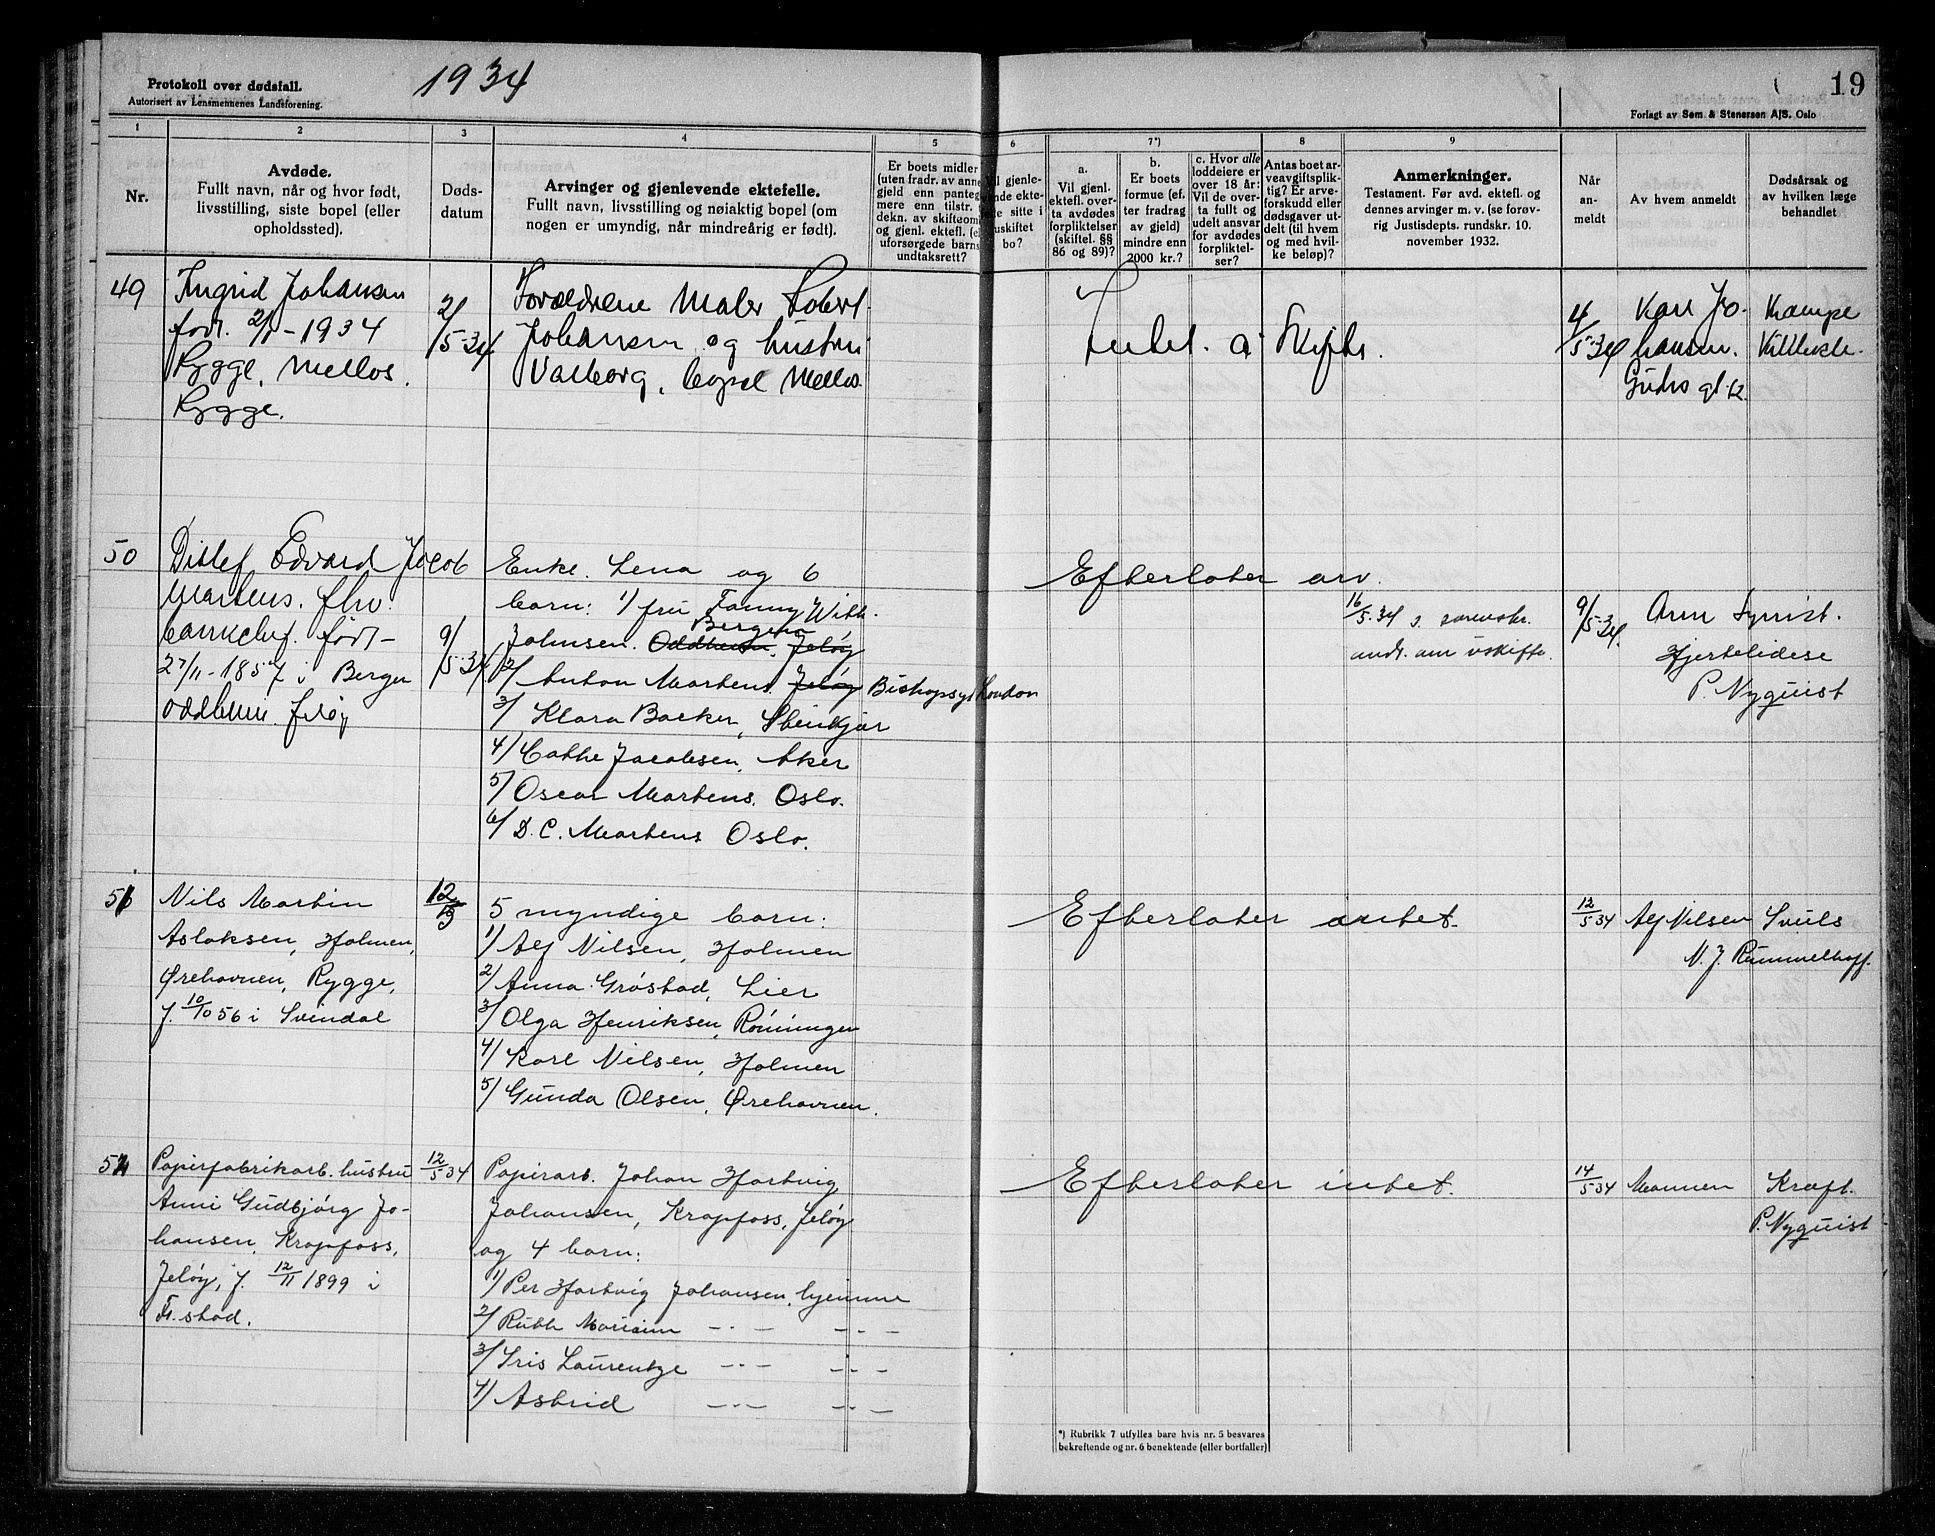 Protokoll over dødsfall.
Autorisert av Lensmennenes Landsforening.
1934
19
Forlagt av Sem & Stenersen A/S. Oslo
1 2 3 4 5 6 7*) 8 9
Nr.
Avdøde.
Fullt navn, når og hvor født,
livsstilling, siste bopel (eller
opholdssted).
Døds-
datum
Arvinger og gjenlevende ektefelle.
Fullt navn, livsstilling og nøiaktig bopel (om
nogen er umyndig, når mindreårig er født).
Er boets midler
(uten fradr. av anne
gjeld enn panteg
mere enn tilstr.
dekn. av skifteom
og gjenl. ektef. (e
uforsørgede barns
undtaksrett?
Vil gjenle-
nde ekte-
le sitte i
uskiftet
bo?
a.
Vil gjenl.
ektef. over-
ta avdødes
forpliktelser
(skiftel. §§
86 og 89)?
b.
Er boets
formue (ef.
ter fradrag
av gjeld)
mindre enn
2000 kr.?
c. Hvor alle
loddeiere er
over 18 år:
Vil de over-
ta fullt og
udelt ansvar
for avdødes
forpliktel-
ser?
Antas boet ar-
veavgiftsplik-
tig? Er arve-
forskudd eller
dødsgaver ut-
delt (til hvem
og med hvil-
ke beløp)?
Anmerkninger.
Testament. Før avd. ektefl. og
dennes arvinger m. v. (se forøv-
rig Justisdepts. rundskr. 10.
november 1932.
Når
an-
meldt
Av hvem anmeldt
Dødsårsak og
av hvilken læge
behandlet
49
Ingrid Johansen
født. 2/1-1934
Rygge, Mellos.
Rygge.
2/5-34
Forældrene Maler Lobert
Johansen og hustru
Valborg, bopæl Mellos
Intet a Skifte.
4/5-34
Karl Jo-
hansen.
Krampe
50
Ditlef Edvard Jacob
Martens. fhv.
bankchef. født
27/11-1857 i Bergen
Oddheim. Jeløy
9/5-34
Enke. Lena og 6
barn: 1/ fru Fanny With
Johnsen. Oddheim. Jeløy Bergen
2/ Anton Martens Jeløy Bishopsg London
3/ Klara Backer, Stenkjær
4/ Cathe Jacobsen, Aker
5/ Oscar Martens. Oslo.
6/ D. C. Martens Oslo.
Efterlater arv.
16/5-34
andr. om uskifte.
9/5-34.
Hjertelidese
P. Nyquist
51
Nils Martin
Aslaksen, Holmen,
Ørehavnen, Rygge,
f. 10/10 56 i Svindal
12/5
5 myndige barn:
1/ Alf Nilsen, Holmen
2/ Anna Grøstad, Lier
3/ Olga Henriksen, Rönningen
4/ Karl Nilsen, Holmen
5/ Gunda Olsen, Ørehavnen.
Efterlater intet.
12/5 34
Alf Nilsen
N. J. Rummelhoff.
52
Papirfabrikarb. hustru
Anni Gudbjørg Jo-
hansen, Krapfoss,
Jeløy, f. 12/11 1899 i
Fr.stad.
12/5 34
Papirarb. Johan Hartvig
Johansen, Krapfoss, Jeløy
og 4 barn:
1/ Per Hartvig Johansen, hjemme
2/ Ruth Mariann —·— —·—
3/ Iris Laurentze —·— —·—
4/ Astrid —·— —·—
Efterlater intet.
14/5 34
Mannen
Kræft.
P. Nyquist
*) Rubrikk 7 utfylles bare hvis nr. 5 besvares
bekreftende og nr. 6 benektende (eller bortfaller)